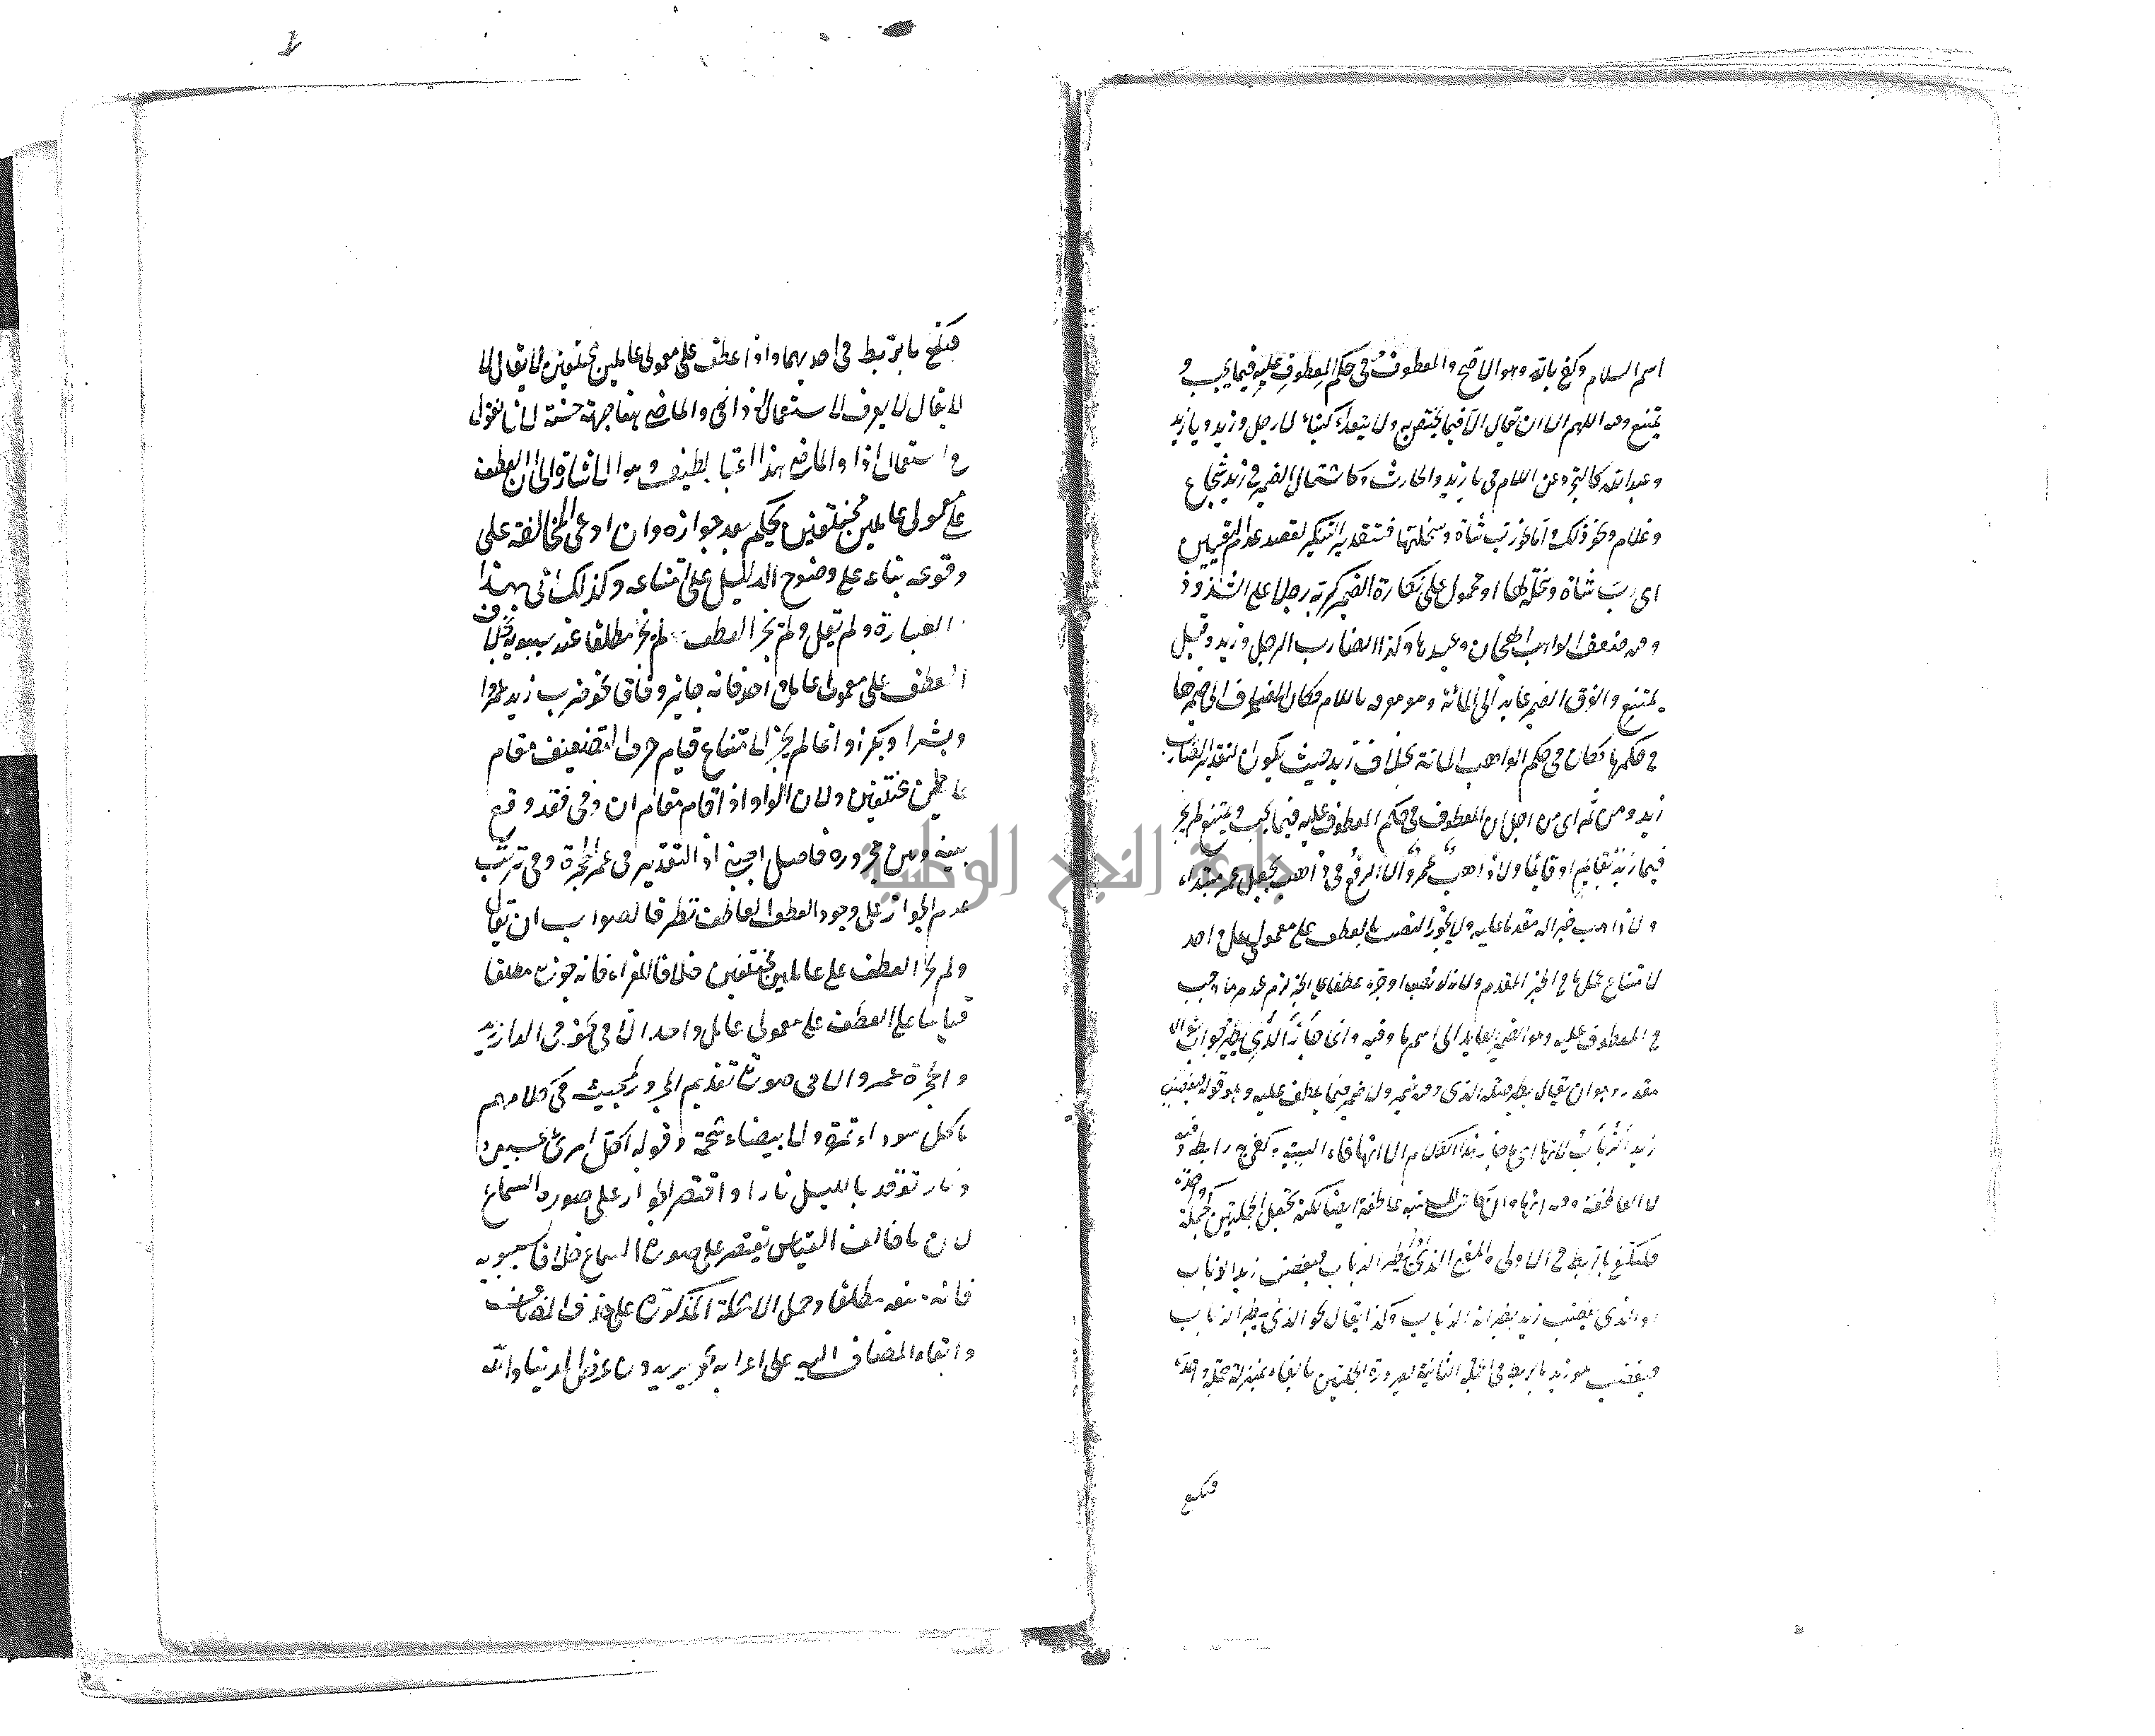 اسم السلام وكفى بالله وهو الاصح والمعطوف في حكم المعطوف عليه فيما يجب و
يمتنع ومنه اللهم الا ان يقال الا فيما يختص به ولا يتعداه كبناء لا رجل وزيد ويا زيد
وعبد الله كالتجرد عن اللام في يا زيد والحارث وكاشتمال الضمير في زيد شجاع
وغلام ونحو ذلك واما نحو رب شاة وسخلتها فبتقدير التنكير لقصد عدم التعيين
اى رب شاة وسخلة لها او محمول على نكارة الضمير كربه رجلا على الشذوذ
ومنه ضعف الواهب الهجان وعبدها وكذا الضارب الرجل وزيد وقيل
يمتنع والفرق الضمير عايد الى المائة وهو معرف باللام فكان المضاف الى ضميرها
في حكمها فكان في حكم الواهب المائة بخلاف زيد حيث يكون التقدير الضارب
زيد ومن ثم اى من اجل ان المعطوف في حكم المعطوف عليه فيما يجب ويمتنع لم يجز
في ما زيد بقايم او قايما ولا ذاهب عمرو الا الرفع في ذاهب بجعل عمرو مبتداء
ولا ذاهب خبرا له مقدما عليه ولا يجوز النصب بالعطف على معمولي عامل واحد
لامتناع عمل ما في الخبر المقدم ولانه لو نصب او جر عطفا على الخبر لزم عدم ما وجب
في المعطوف عليه وهو الضمير العايد الى اسم ما وفيه وانما جاز الذي يطير جواب سؤال
مقدر وهو ان يقال يطير صلة الذي وفيه ضمير ولا ضمير فيما عطف عليه وهو قوله فيغضب
زيد الذباب لانها اى جاز هذا الكلام لانها فاء السببية وكفى به رابطة وفيه
لا العاطفة ومنه انها وان كانت للسببية عاطفة ايضا لكنه تجعل الجملتين كجملة واحدة
فيكتفى بالربط في الاولى والمعنى الذي اذا يطير الذباب فيغضب زيد الذباب
او الذي يغضب زيد بطيرانه الذباب وكذا يقال نحو الذي يطير الذباب
فيغضب هو زيد بالربط في الجملة الثانية لصيرورة الجملتين بالفاء بمنزلة جملة واحدة
فيكتفى
فيكتفى بالربط في احديهما واذا عطف على معمولي عاملين مختلفين لا يقال لا
لا يقال لا يعرف لاستعمال اذا في والماضي هنا جهة حسنة لانا نقول
في استعمال اذا والماضي هذا اعتبار لطيف وهو الاشارة الى ان العطف
على معمولي عاملين مختلفين يحكم بعد جوازه وان ادعى المخالفة على
وقوعه بناء على وضوح الدليل على امتناعه وكذلك اتى بهذا
العبارة ولم يقل ولم يجز العطف لم يجز مطلقا عند سيبويه بخلاف
العطف على معمولي عامل واحد فانه جايز وفاقا نحو ضرب زيد عمروا
وبشرا وبكرا وانما لم يجز لامتناع قيام حرف التضعيف مقام
عاملين مختلفين ولان الواو اذا اقام مقام ان وفي فقد وقع
بينه وبين مجروره فاصل اجنبي اذ التقدير في عمرو الحجرة وفي ترتب
عدم الجواز على وجود العطف العاطف نظر فالصواب ان يقال
ولم يجز العطف على عاملين مختلفين خلافا للفراء فانه جوزه مطلقا
قياسا على العطف على معمولي عامل واحد الا في نحو في الدار زيد
والحجرة عمرو الا في صورة تقديم المجرور لمجيئه في كلامهم
ما كل سوداء تمرة ولا بيضاء شحمة وقوله اكل امرئ تحسبين
ونار توقد بالليل نارا واقتصر الجواز على صورة السماع
لان ما خالف القياس يقتصر على صورة السماع خلافا لسيبويه
فانه منعه مطلقا وحمل الامثلة المذكورة على حذف المضاف
وابقاء المضاف اليه على اعرابه نحو يريدون عرض الدنيا والله
جامعة النجاح الوطنية